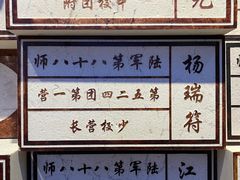 中校团附
杨瑞符
陆军第八十八师
第五二四团第一营
少校营长
江
陆军第八十八师